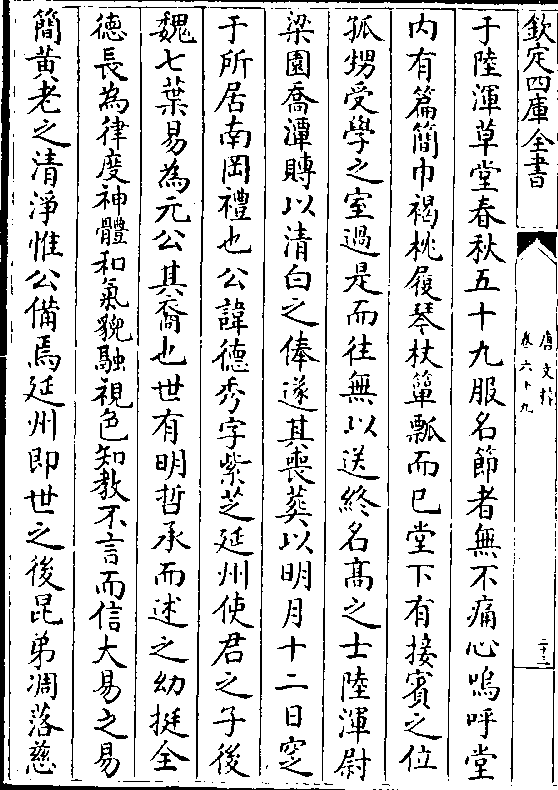 欽定四庫全書
唐文粹
卷六十九
二十三
于陸渾草堂春秋五十九服名節者無不痛心嗚呼堂
内有篇簡巾褐桃屨琴杖簞瓢而已堂下有接賓之位
孤甥受學之室過是而往無以送終名髙之士陸渾尉
梁園喬潭賻以清白之俸遂其喪葬以明月十二日窆
于所居南岡禮也公諱德秀字紫芝延州使君之子後
魏七葉易為元公其裔也世有明哲承而述之幼挺全
德長為律度神體和氣貌融視色知教不言而信大易之易
簡黄老之清淨惟公備焉延州即世之後昆弟凋落慈